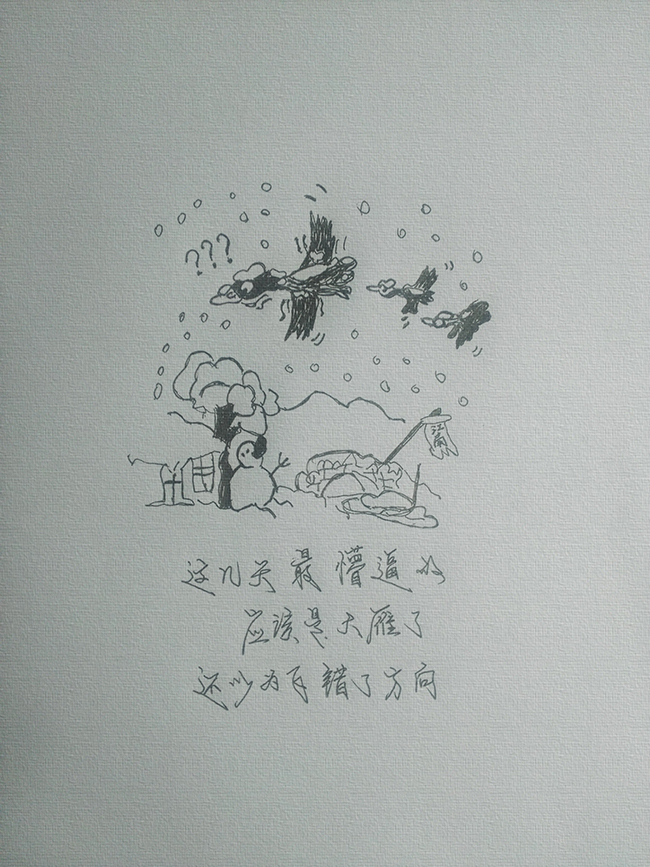 ???
江南
这几天最懵逼的
应该是大雁了
还以为飞错了方向